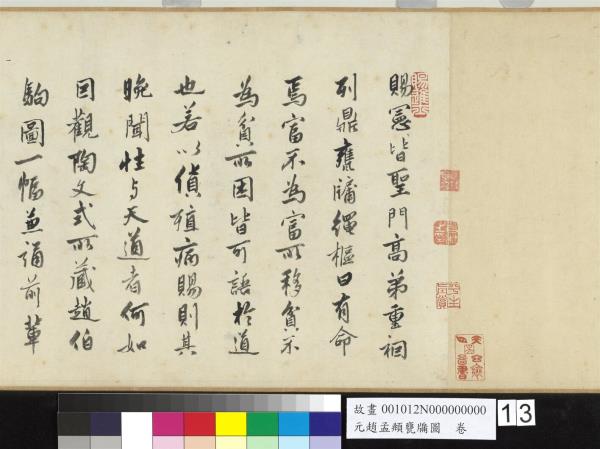 賜憲皆聖門高弟重裀
列鼎甕牖繩樞曰有命
焉富不為富所移貧不
為貧所困皆可語於道
也若以貨殖病賜則其
晚聞性与天道者何如
因觀陶文式所藏趙伯
駒圖一幅並誦前輩
故畫 001012N000000000
元趙孟頫甕牖圖 卷
13